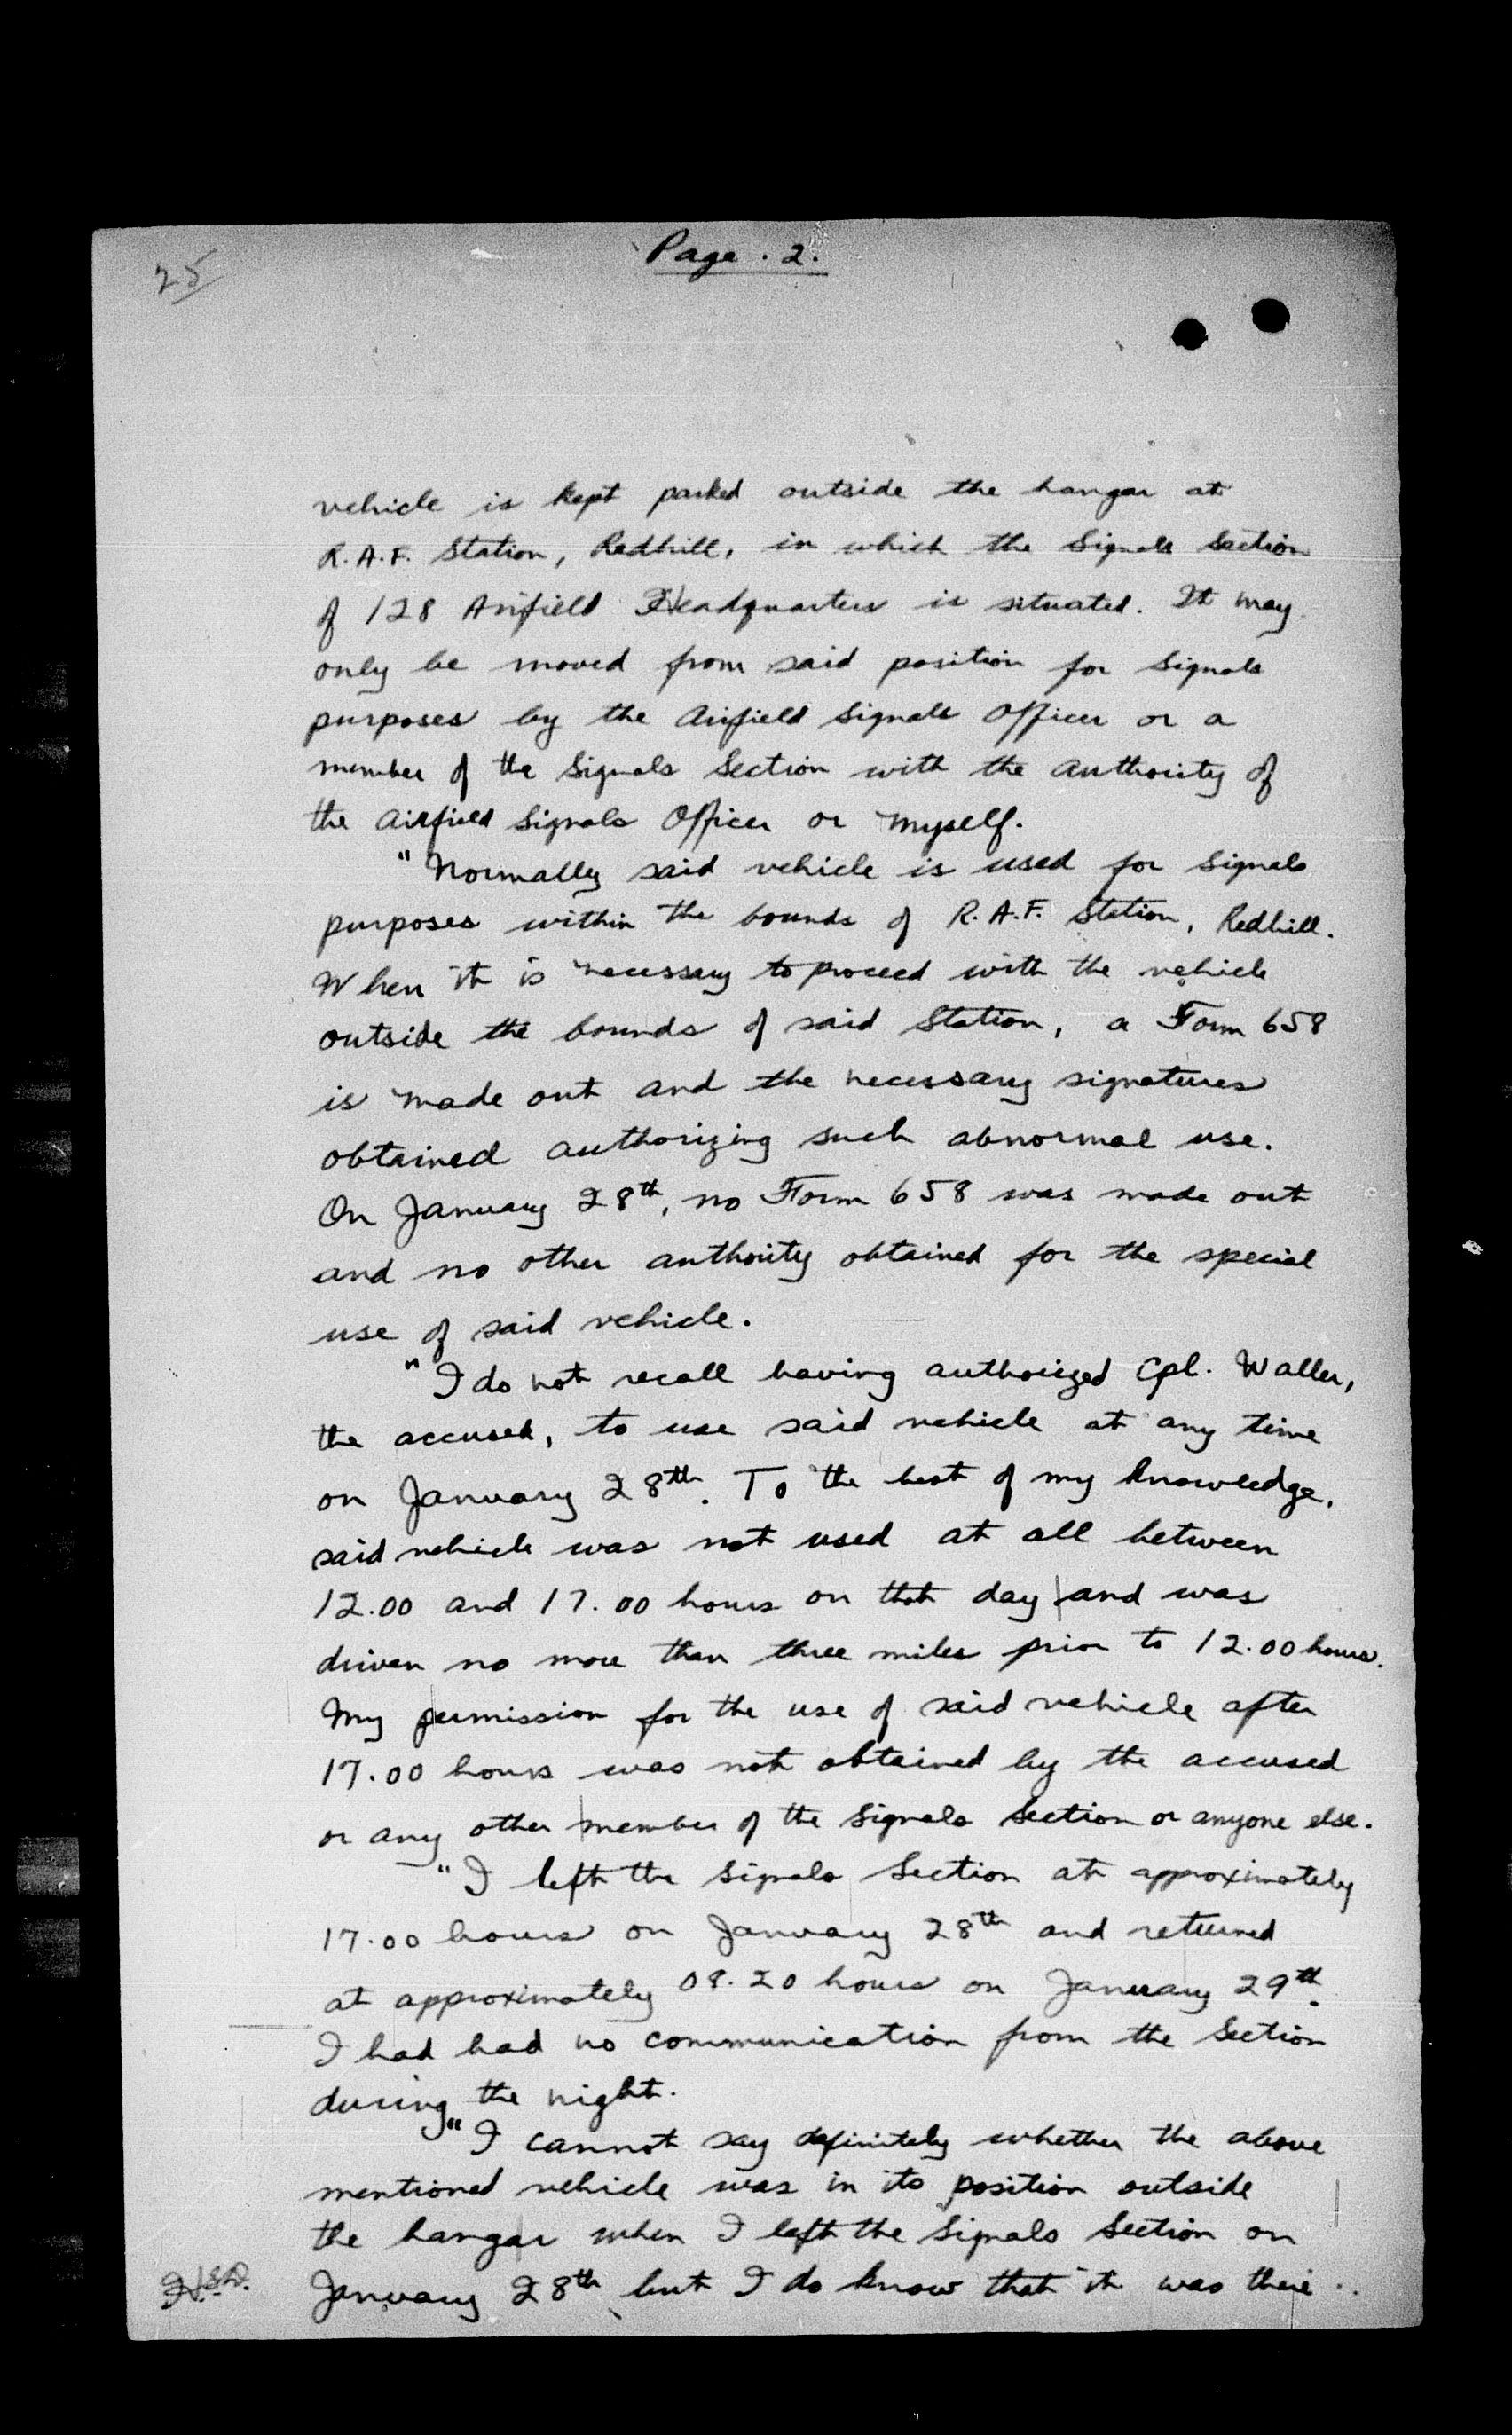 25
Page . 2.
vehicle is kept parked outside the hangar at
R.A.F. Station, Redhill, in which the Signals Section
of 128 Airfield Headquarters is situated. It may
only be moved from said position for Signals
purposes by the Airfield Signals Officer or a
member of the Signals Section with the authority of
the Airfield Signals Officer or myself.
"Normally said vehicle is used for Signals
purposes within the bounds of R.A.F. Station, Redhill.
When it is necessary to proceed with the vehicle
outside the bounds of said Station, a Form 658
is made out and the necessary signatures
obtained authorizing such abnormal use.
On January 28th, no Form 658 was made out
and no other authority obtained for the special
use of said vehicle.
"I do not recall having authorized Cpl. Waller,
the accused, to use said vehicle at any time
on January 28th. To the best of my knowledge,
said vehicle was not used at all between
12.00 and 17.00 hours on that day and was
driven no more than three miles prior to 12.00 hours.
My permission for the use of said vehicle after
17.00 hours was not obtained by the accused
or any other member of the Signals Section or anyone else.
"I left the Signals Section at approximately
17.00 hours on January 28th and returned
at approximately 08.20 hours on January 29th.
I had had no communication from the Section
during the night.
"I cannot say definitely whether the above
mentioned vehicle was in its position outside
the hangar when I left the Signals Section on
January 28th but I do know that it was there